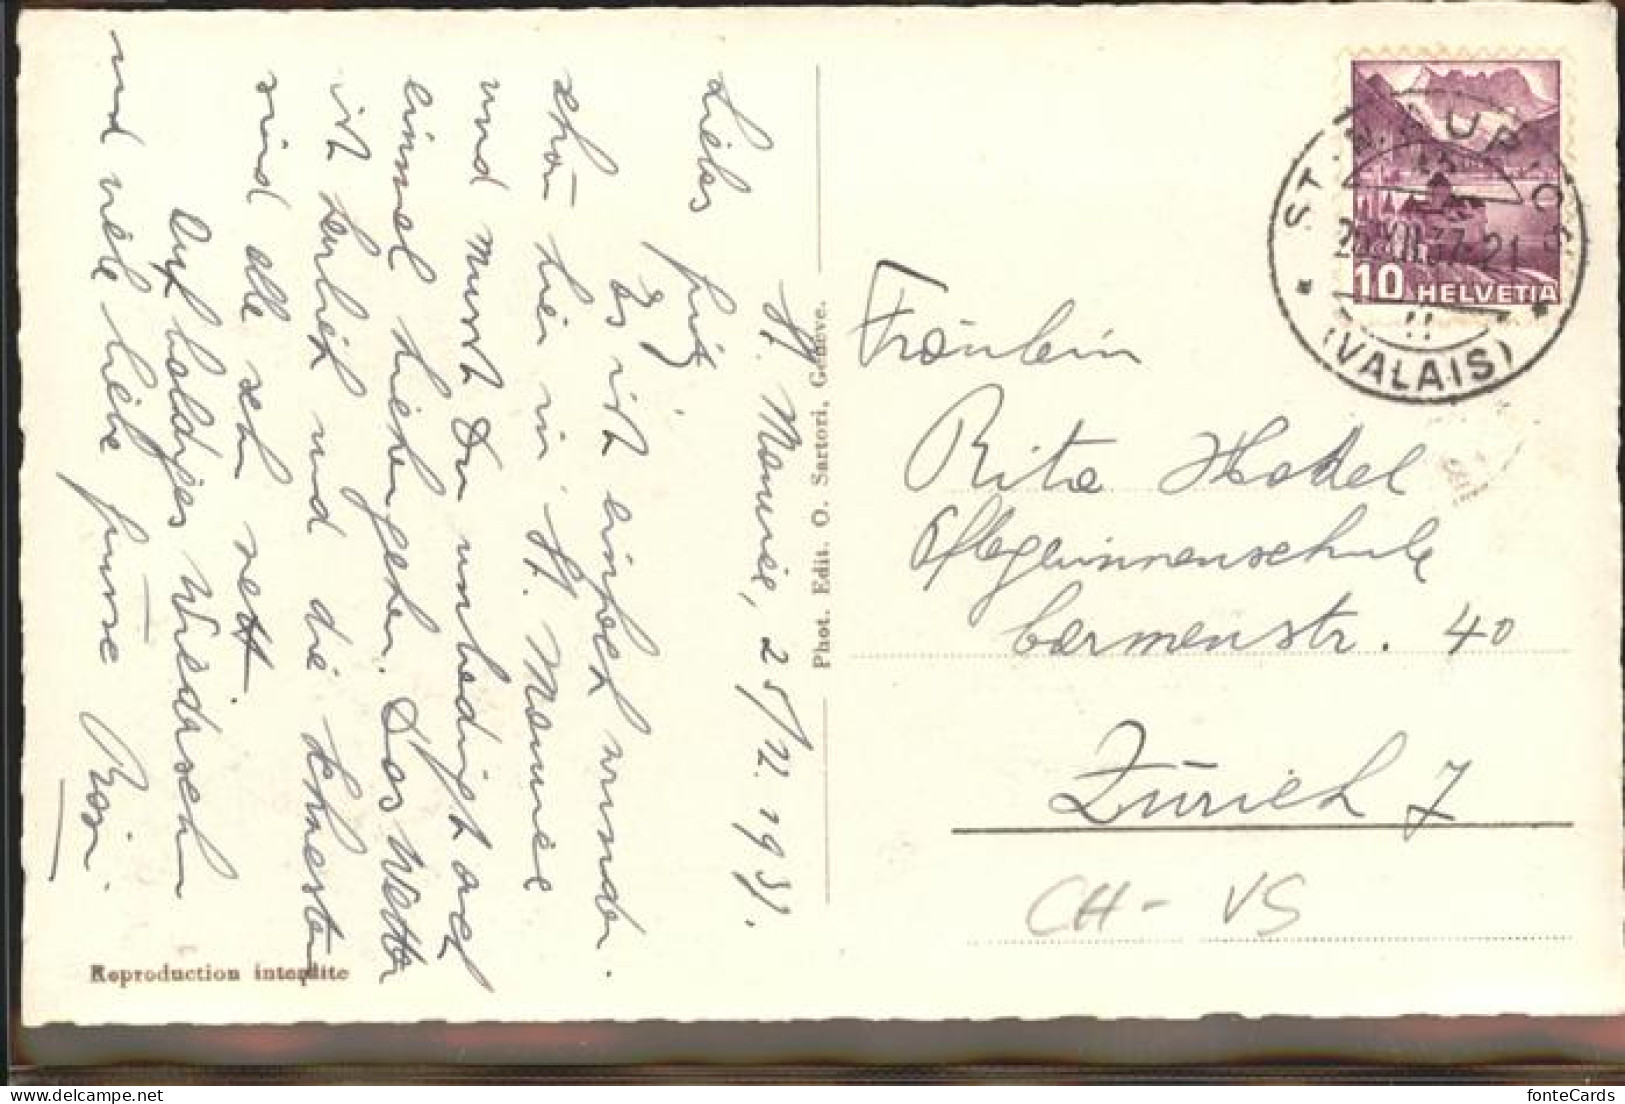 St. Maurice, 25/12. 1937.
Liebes
Es ist einfach wunder-
schön hier in St. Maurice
und musst Du unbedingt auch
einmal hierher gehen. Das Wetter
ist herrlich und die Schwestern
sind alle sehr nett.
Auf baldiges Wiedersehen
und viele liebe Grüsse Rosi.
Reproduction interdite
Phot. Edit. O. Sartori, Genève.
ST. MAURICE
25.XII.37-21
(VALAIS)
10 HELVETIA
Fräulein
Rita Hekel
Pflegerinnenschule
Carmenstr. 40
Zürich 7
CH - VS
fonteCards